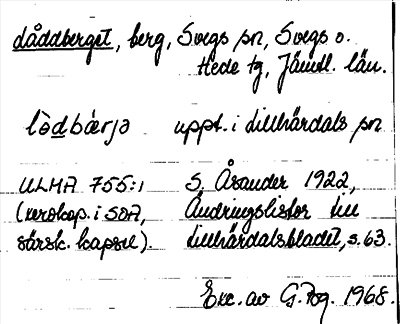 dåddberget, berg, Svegs sn, Svegs o.
Hede tg, Jämtl. län.
lòdbǽrjə uppt. i Lillhärdals sn
ULMA 755:1 S. Åsander 1922,
(xerokop. i SOA, Ändringslistor till
särsk. kapsel). Lillhärdalsbladet, s. 63.
Exc. av G. Pog. 1968.